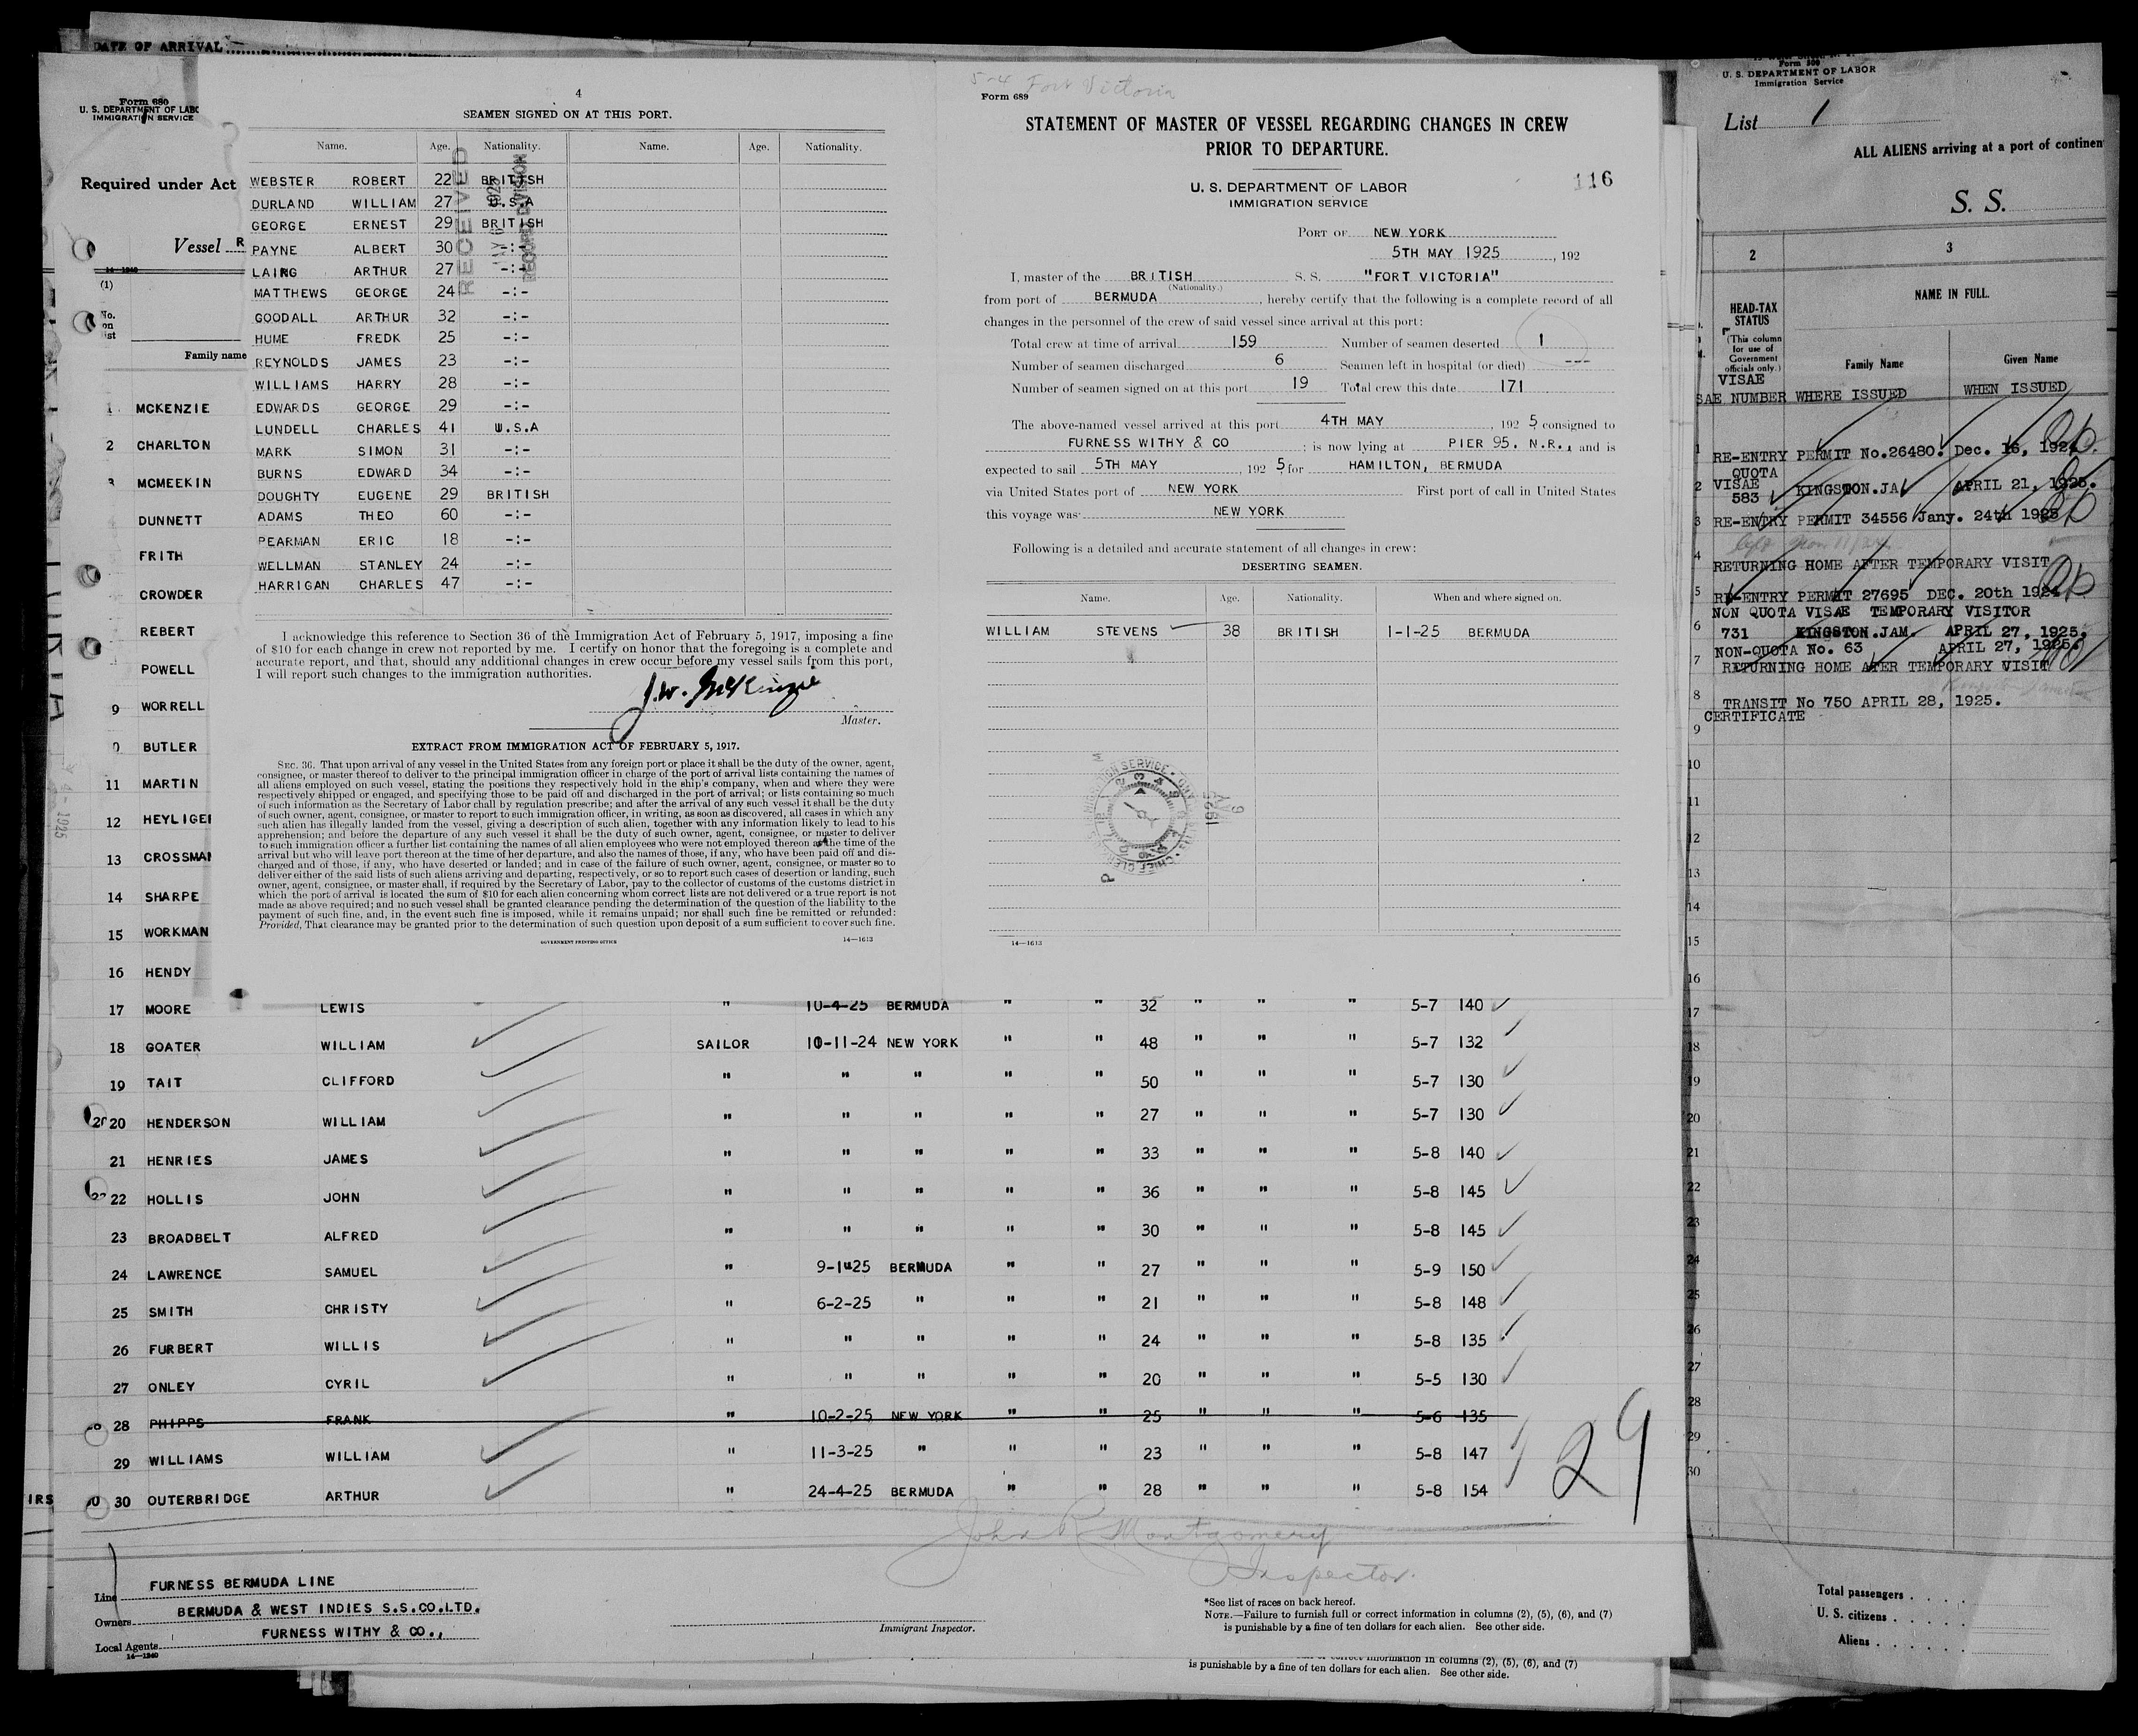 DATE OF ARRIVAL
Form 680
U. S. DEPARTMENT OF LABO
IMMIGRATION SERVICE
Required under Act
Vessel R
14—1240
(1)
No.
on
ist
Family name
1 MCKENZIE
2 CHARLTON
3 MCMEEKIN
DUNNETT
FRITH
CROWDER
REBERT
POWELL
9 WORRELL
0 BUTLER
11 MARTIN
12 HEYLIGE
13 CROSSMA
14 SHARPE
15 WORKMAN
16 HENDY
4
SEAMEN SIGNED ON AT THIS PORT.
Name. Age. Nationality. Name. Age. Nationality.
WEBSTER ROBERT 22 BRITISH
DURLAND WILLIAM 27 U.S.A
GEORGE ERNEST 29 BRITISH
PAYNE ALBERT 30 -:-
LAING ARTHUR 27 -:-
MATTHEWS GEORGE 24 -:-
GOODALL ARTHUR 32 -:-
HUME FREDK 25 -:-
REYNOLDS JAMES 23 -:-
WILLIAMS HARRY 28 -:-
EDWARDS GEORGE 29 -:-
LUNDELL CHARLES 41 U.S.A
MARK SIMON 31 -:-
BURNS EDWARD 34 -:-
DOUGHTY EUGENE 29 BRITISH
ADAMS THEO 60 -:-
PEARMAN ERIC 18 -:-
WELLMAN STANLEY 24 -:-
HARRIGAN CHARLES 47 -:-
RECEIVED
1925
DIVISION
I acknowledge this reference to Section 36 of the Immigration Act of February 5, 1917, imposing a fine
of $10 for each change in crew not reported by me. I certify on honor that the foregoing is a complete and
accurate report, and that, should any additional changes in crew occur before my vessel sails from this port,
I will report such changes to the immigration authorities.
J.W. McKenzie
Master.
EXTRACT FROM IMMIGRATION ACT OF FEBRUARY 5, 1917.
SEC. 36. That upon arrival of any vessel in the United States from any foreign port or place it shall be the duty of the owner, agent,
consignee, or master thereof to deliver to the principal immigration officer in charge of the port of arrival lists containing the names of
all aliens employed on such vessel, stating the positions they respectively hold in the ship's company, when and where they were
respectively shipped or engaged, and specifying those to be paid off and discharged in the port of arrival; or lists containing so much
of such information as the Secretary of Labor chall by regulation prescribe; and after the arrival of any such vessel it shall be the duty
of such owner, agent, consignee, or master to report to such immigration officer, in writing, as soon as discovered, all cases in which any
such alien has illegally landed from the vessel, giving a description of such alien, together with any information likely to lead to his
apprehension; and before the departure of any such vessel it shall be the duty of such owner, agent, consignee, or master to deliver
to such immigration officer a further list containing the names of all alien employees who were not employed thereon at the time of the
arrival but who will leave port thereon at the time of her departure, and also the names of those, if any, who have been paid off and dis-
charged and of those, if any, who have deserted or landed; and in case of the failure of such owner, agent, consignee, or master so to
deliver either of the said lists of such aliens arriving and departing, respectively, or so to report such cases of desertion or landing, such
owner, agent, consignee, or master shall, if required by the Secretary of Labor, pay to the collector of customs of the customs district in
which the port of arrival is located the sum of $10 for each alien concerning whom correct lists are not delivered or a true report is not
made as above required; and no such vessel shall be granted clearance pending the determination of the question of the liability to the
payment of such fine, and, in the event such fine is imposed, while it remains unpaid; nor shall such fine be remitted or refunded:
Provided, That clearance may be granted prior to the determination of such question upon deposit of a sum sufficient to cover such fine.
GOVERNMENT PRINTING OFFICE 14—1613
5-4 Fort Victoria
Form 689
STATEMENT OF MASTER OF VESSEL REGARDING CHANGES IN CREW
PRIOR TO DEPARTURE.
116
U. S. DEPARTMENT OF LABOR
IMMIGRATION SERVICE
PORT OF NEW YORK
5TH MAY 1925, 192
I, master of the BRITISH S. S. "FORT VICTORIA"
(Nationality.)
from port of BERMUDA, hereby certify that the following is a complete record of all
changes in the personnel of the crew of said vessel since arrival at this port:
Total crew at time of arrival 159 Number of seamen deserted 1
Number of seamen discharged 6 Seamen left in hospital (or died) ---
Number of seamen signed on at this port 19 Total crew this date 171
The above-named vessel arrived at this port 4TH MAY, 192 5 consigned to
FURNESS WITHY & CO; is now lying at PIER 95. N.R., and is
expected to sail 5TH MAY, 192 5 for HAMILTON, BERMUDA
via United States port of NEW YORK First port of call in United States
this voyage was NEW YORK
Following is a detailed and accurate statement of all changes in crew:
DESERTING SEAMEN.
Name. Age. Nationality. When and where signed on.
WILLIAM STEVENS 38 BRITISH 1-1-25 BERMUDA
1925
MAY
6
14—1613
17 MOORE LEWIS " 10-4-25 BERMUDA " " 32 " " " 5-7 140
18 GOATER WILLIAM SAILOR 10-11-24 NEW YORK " " 48 " " " 5-7 132
19 TAIT CLIFFORD " " " " " 50 " " " 5-7 130
20 HENDERSON WILLIAM " " " " " 27 " " " 5-7 130
21 HENRIES JAMES " " " " " 33 " " " 5-8 140
22 HOLLIS JOHN " " " " " 36 " " " 5-8 145
23 BROADBELT ALFRED " " " " " 30 " " " 5-8 145
24 LAWRENCE SAMUEL " 9-1-25 BERMUDA " " 27 " " " 5-9 150
25 SMITH CHRISTY " 6-2-25 " " " 21 " " " 5-8 148
26 FURBERT WILLIS " " " " " 24 " " " 5-8 135
27 ONLEY CYRIL " " " " " 20 " " " 5-5 130
28 PHIPPS FRANK " 10-2-25 NEW YORK " " 25 " " " 5-6 135
29 WILLIAMS WILLIAM " 11-3-25 " " " 23 " " " 5-8 147
30 OUTERBRIDGE ARTHUR " 24-4-25 BERMUDA " " 28 " " " 5-8 154
29
John R Montgomery
Inspector.
Line FURNESS BERMUDA LINE
Owners BERMUDA & WEST INDIES S.S.CO.LTD.
Local Agents FURNESS WITHY & CO.,
14—1240
Immigrant Inspector.
*See list of races on back hereof.
NOTE.—Failure to furnish full or correct information in columns (2), (5), (6), and (7)
is punishable by a fine of ten dollars for each alien. See other side.
correct information in columns (2), (5), (6), and (7)
is punishable by a fine of ten dollars for each alien. See other side.
Form 500
U. S. DEPARTMENT OF LABOR
Immigration Service
List 1
ALL ALIENS arriving at a port of continen
S. S.
2 3
HEAD-TAX
STATUS
(This column
for use of
Government
officials only.)
NAME IN FULL.
Family Name Given Name
VISAE
SAE NUMBER WHERE ISSUED WHEN ISSUED
1 RE-ENTRY PERMIT No.26480. Dec. 16, 1924.
QUOTA
2 VISAE
583 KINGSTON.JA APRIL 21, 1925.
3 RE-ENTRY PERMIT 34556 Jany. 24th 1925
4
RETURNING HOME AFTER TEMPORARY VISIT
5 RE-ENTRY PERMIT 27695 DEC. 20th 1924
NON QUOTA VISAE TEMPORARY VISITOR
6 731 KINGSTON.JAM. APRIL 27, 1925.
NON-QUOTA No. 63 APRIL 27, 1925.
7 RETURNING HOME AFTER TEMPORARY VISIT
8 TRANSIT No 750 APRIL 28, 1925.
CERTIFICATE
9
10
11
12
13
14
15
16
17
18
19
20
21
22
23
24
25
26
27
28
29
30
Total passengers
U. S. citizens
Aliens